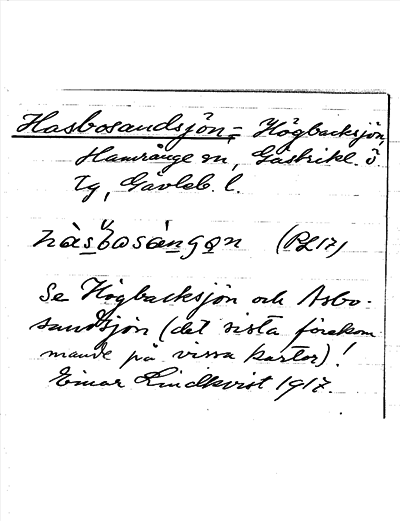 Hasbosandsjön, = Högbacksjön,
Hamrånge sn, Gästrikl. ö.
tg, Gävleb. l.
hàsbosàngọn (PL 17)
Se Högbacksjön och Asbo-
sandsjön (det sista förekom-
mande på vissa kartor)!
Einar Lindkvist 1917.